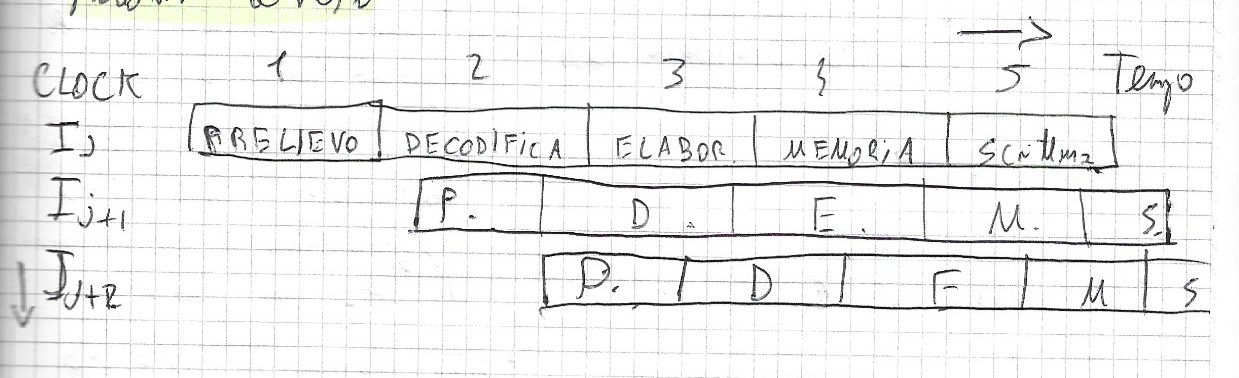 CLOCK 1 2 3 4 5 Tempo
Ij PRELIEVO DECODIFICA ELABOR. MEMORIA Scrittura
Ij+1 P. D. E. M. S.
Ij+2 P. D E M S